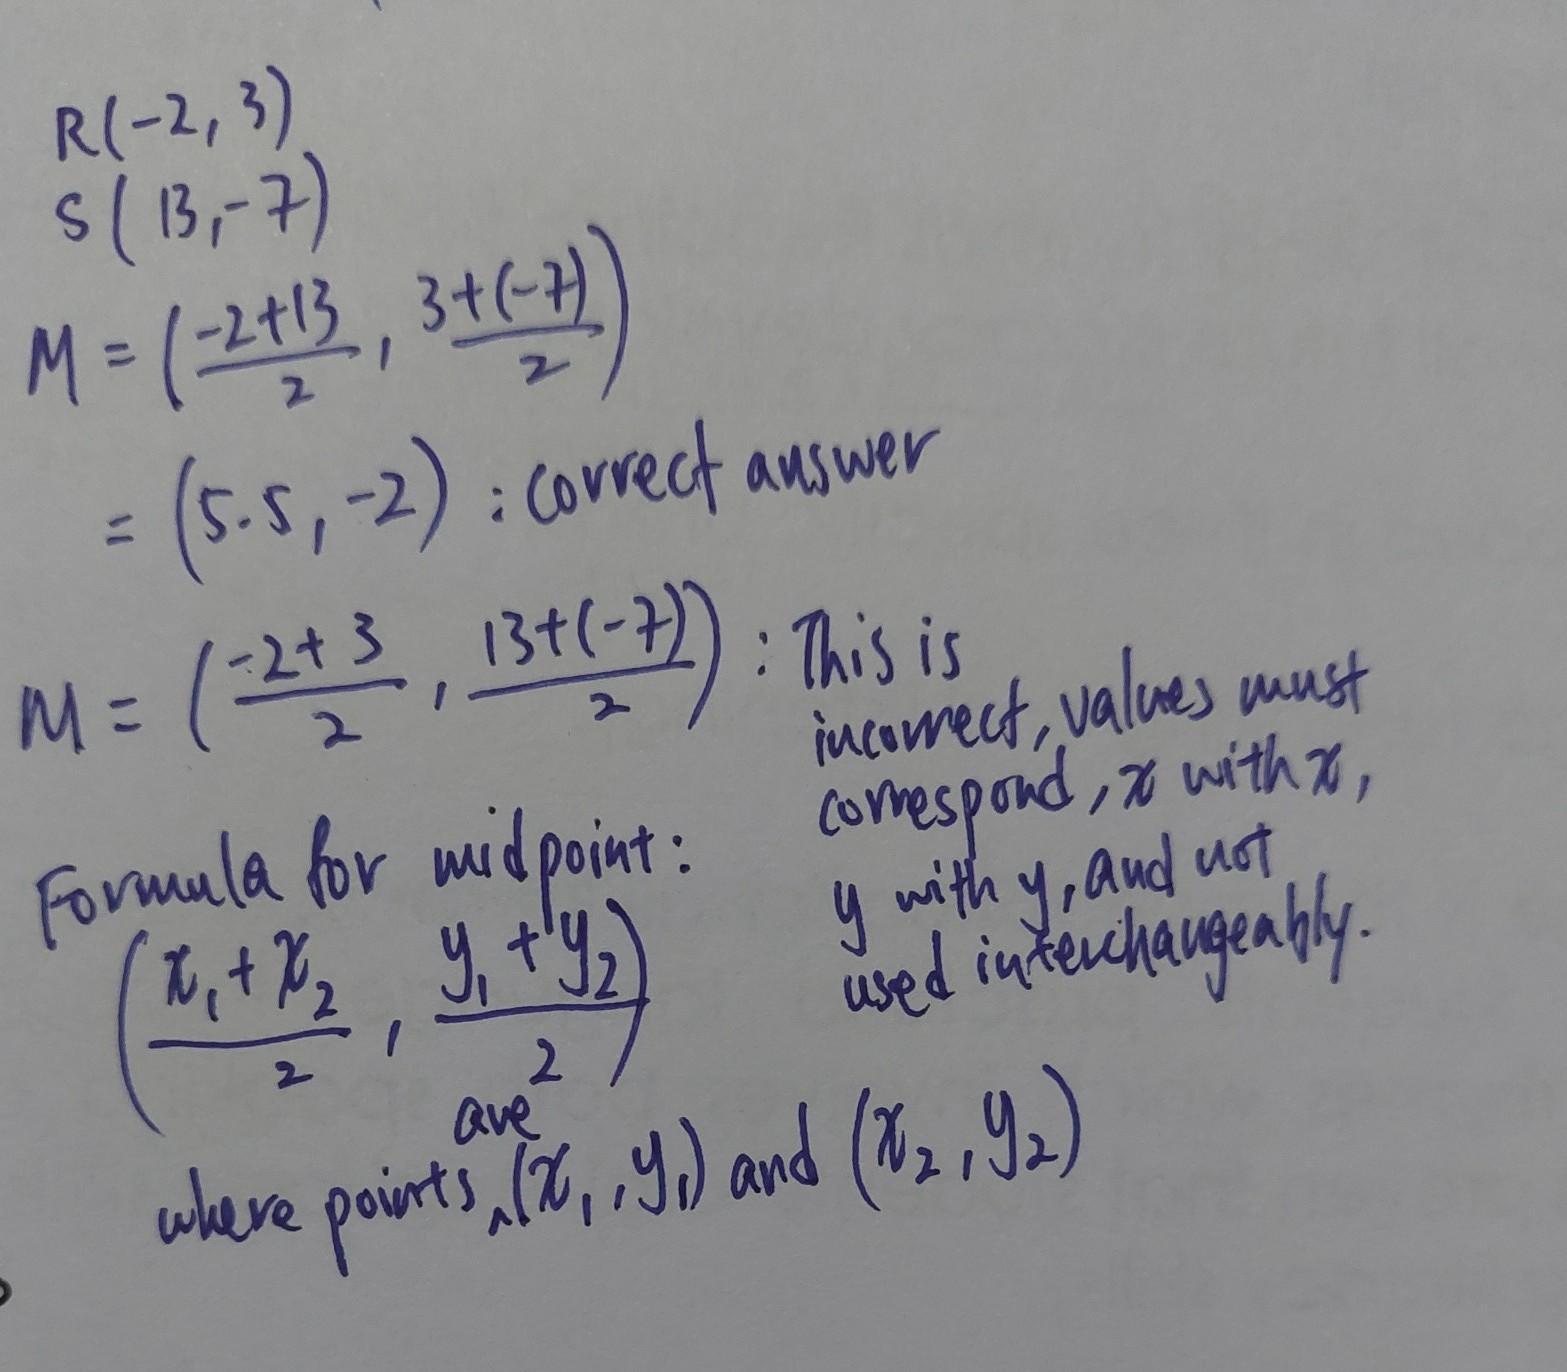 R(-2, 3)
S(13, -7)
M = (-2+13/2, 3+(-7)/2)
= (5.5, -2) : correct answer
M = (-2+3/2, 13+(-7)/2) : This is
incorrect, values must
correspond, x with x,
y with y, and not
used interchangeably.
Formula for midpoint:
(x₁+x₂/2, y₁+y₂/2)
where points are (x₁, y₁) and (x₂, y₂)